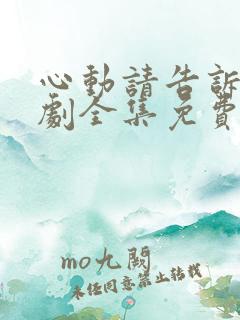 心動請告訴
劇全集免費
mo九闕
未经同意禁止转载